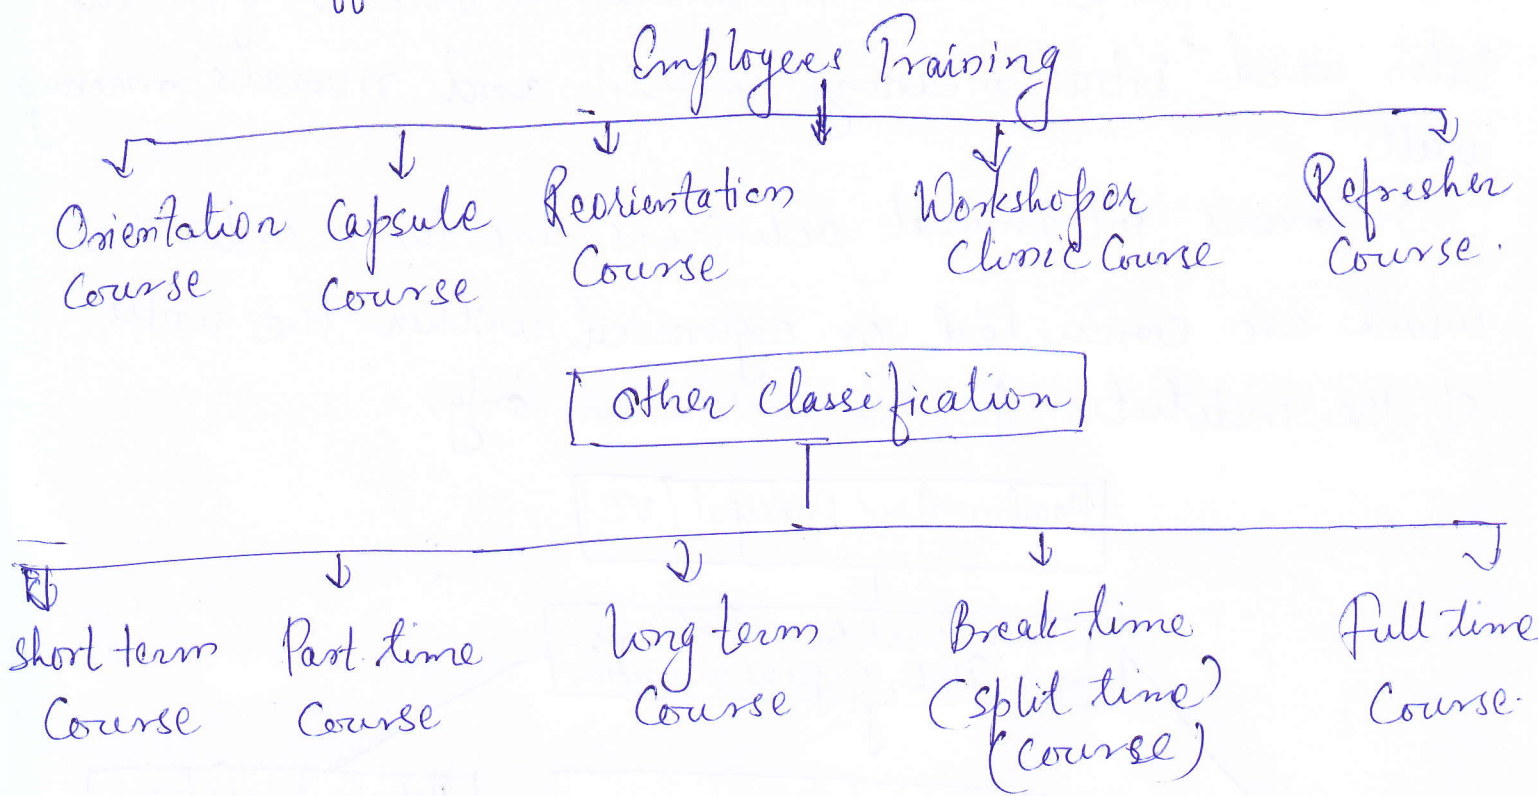 Employees Training
Orientation Course
Capsule Course
Reorientation Course
Workshop or Clinic Course
Refresher Course.
Other Classification
Short term Course
Part time Course
Long term Course
Break time (Split time) (Course)
Full time Course.